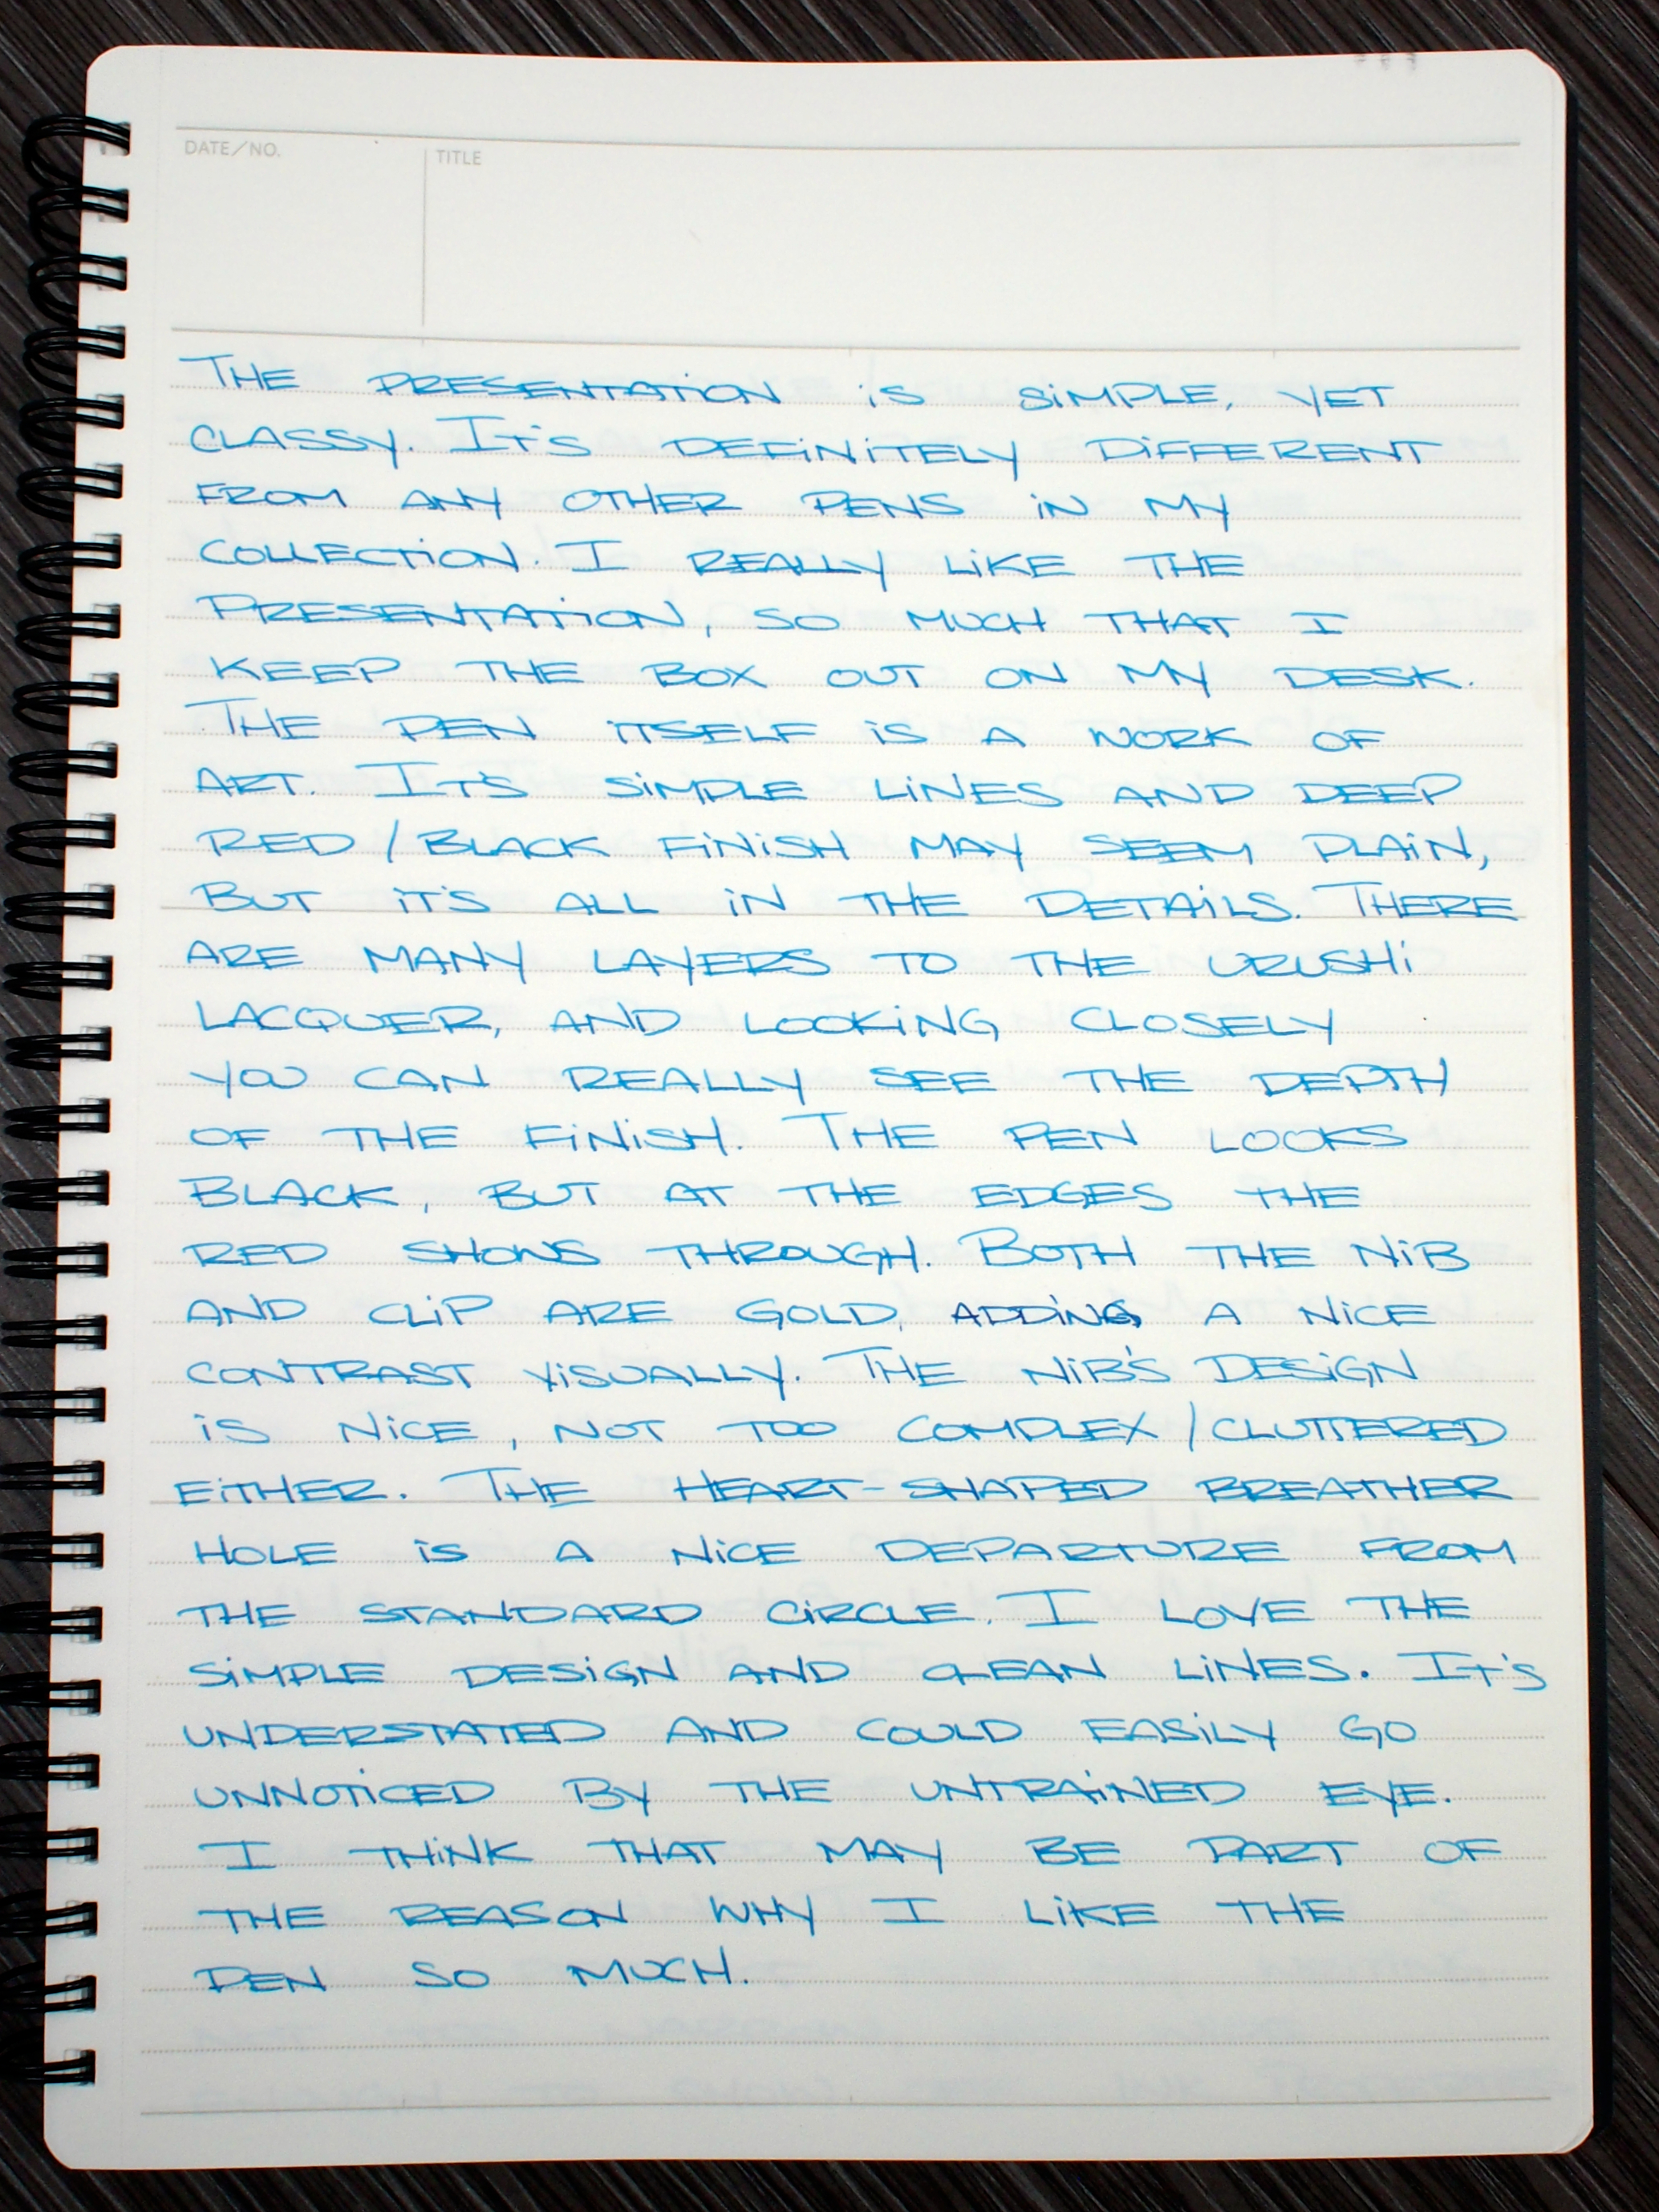 DATE/NO.
TITLE
THE PRESENTATION iS SiMPLE, YET
CLASSY. IT'S DEFiNiTELY DiFFERENT
FROM ANY OTHER PENS iN MY
COLLECTiON. I REALLY LiKE THE
PRESENTATiON, SO MUCH THAT I
KEEP THE BOX OUT ON MY DESK.
THE PEN iTSELF iS A WORK OF
ART. IT'S SiMPLE LiNES AND DEEP
RED/BLACK FiNiSH MAY SEEM PLAiN,
BUT iT'S ALL iN THE DETAiLS. THERE
ARE MANY LAYERS TO THE URUSHi
LACQUER, AND LOOKiNG CLOSELY
YOU CAN REALLY SEE THE DEPTH
OF THE FiNiSH. THE PEN LOOKS
BLACK, BUT AT THE EDGES THE
RED SHOWS THROUGH. BOTH THE NiB
AND CLiP ARE GOLD, ADDiNG A NiCE
CONTRAST ViSUALLY. THE NiB'S DESiGN
iS NiCE, NOT TOO COMPLEX/CLUTTERED
EiTHER. THE HEART-SHAPED BREATHER
HOLE iS A NiCE DEPARTURE FROM
THE STANDARD CiRCLE. I LOVE THE
SiMPLE DESiGN AND CLEAN LiNES. IT'S
UNDERSTATED AND COULD EASiLY GO
UNNOTiCED BY THE UNTRAiNED EYE.
I THiNK THAT MAY BE PART OF
THE REASON WHY I LiKE THE
PEN SO MUCH.